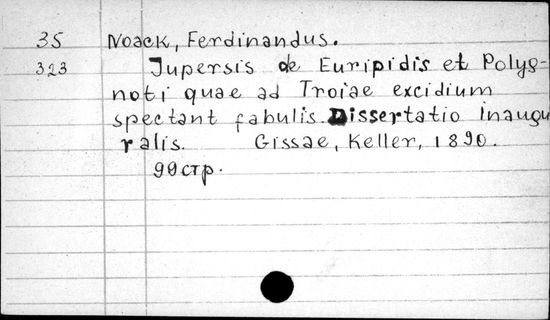 35 Noack, Ferdinandus.
323 Iupersis de Euripidis et Polyg-
noti quae ad Troiae excidium
spectant fabulis. Dissertatio inaugu
ralis. Gissae, Keller, 1890.
99 стр.